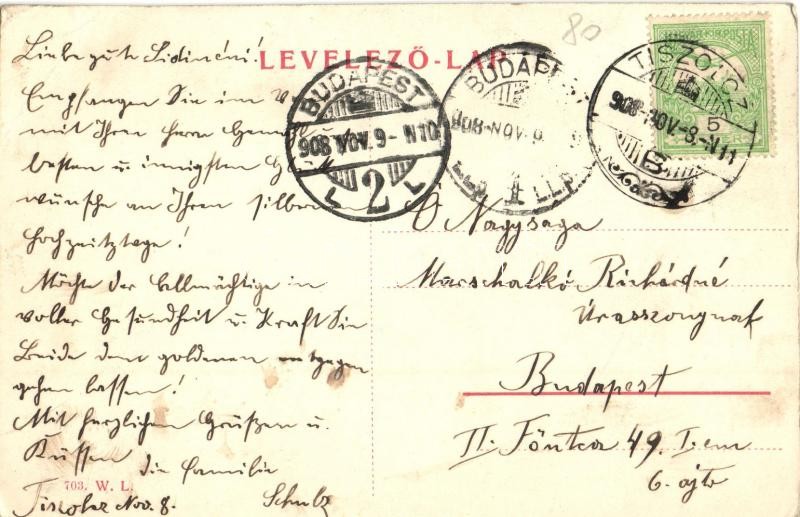 LEVELEZŐ-LAP
80
Liebe gute Sidinéni!
Empfangen Sie im V
mit Ihrem Herrn Gemahl
besten u innigsten Glück
wünsche an Ihrem silbernen
Hochzeitstage!
Möchte der Allmächtige in
voller Gesundheit u. Kraft Sie
Beide dem goldenen entgegen
gehen lassen!
Mit herzlichen Grüßen u.
Küssen
die Familie
Schulz
Tiszolcz Nov. 8.
703. W. L.
BUDAPEST
908 NOV. 9 - N10
L 2 L
BUDAPEST
908-NOV.9.
1
TISZOLCZ
908-NOV.-8.-N11
B
MAGYAR KIR. POSTA
5
Ő Nagysága
Marschalkó Richárdné
Úrasszonynak
Budapest
II. Főutca 49. I. em
6. ajtó